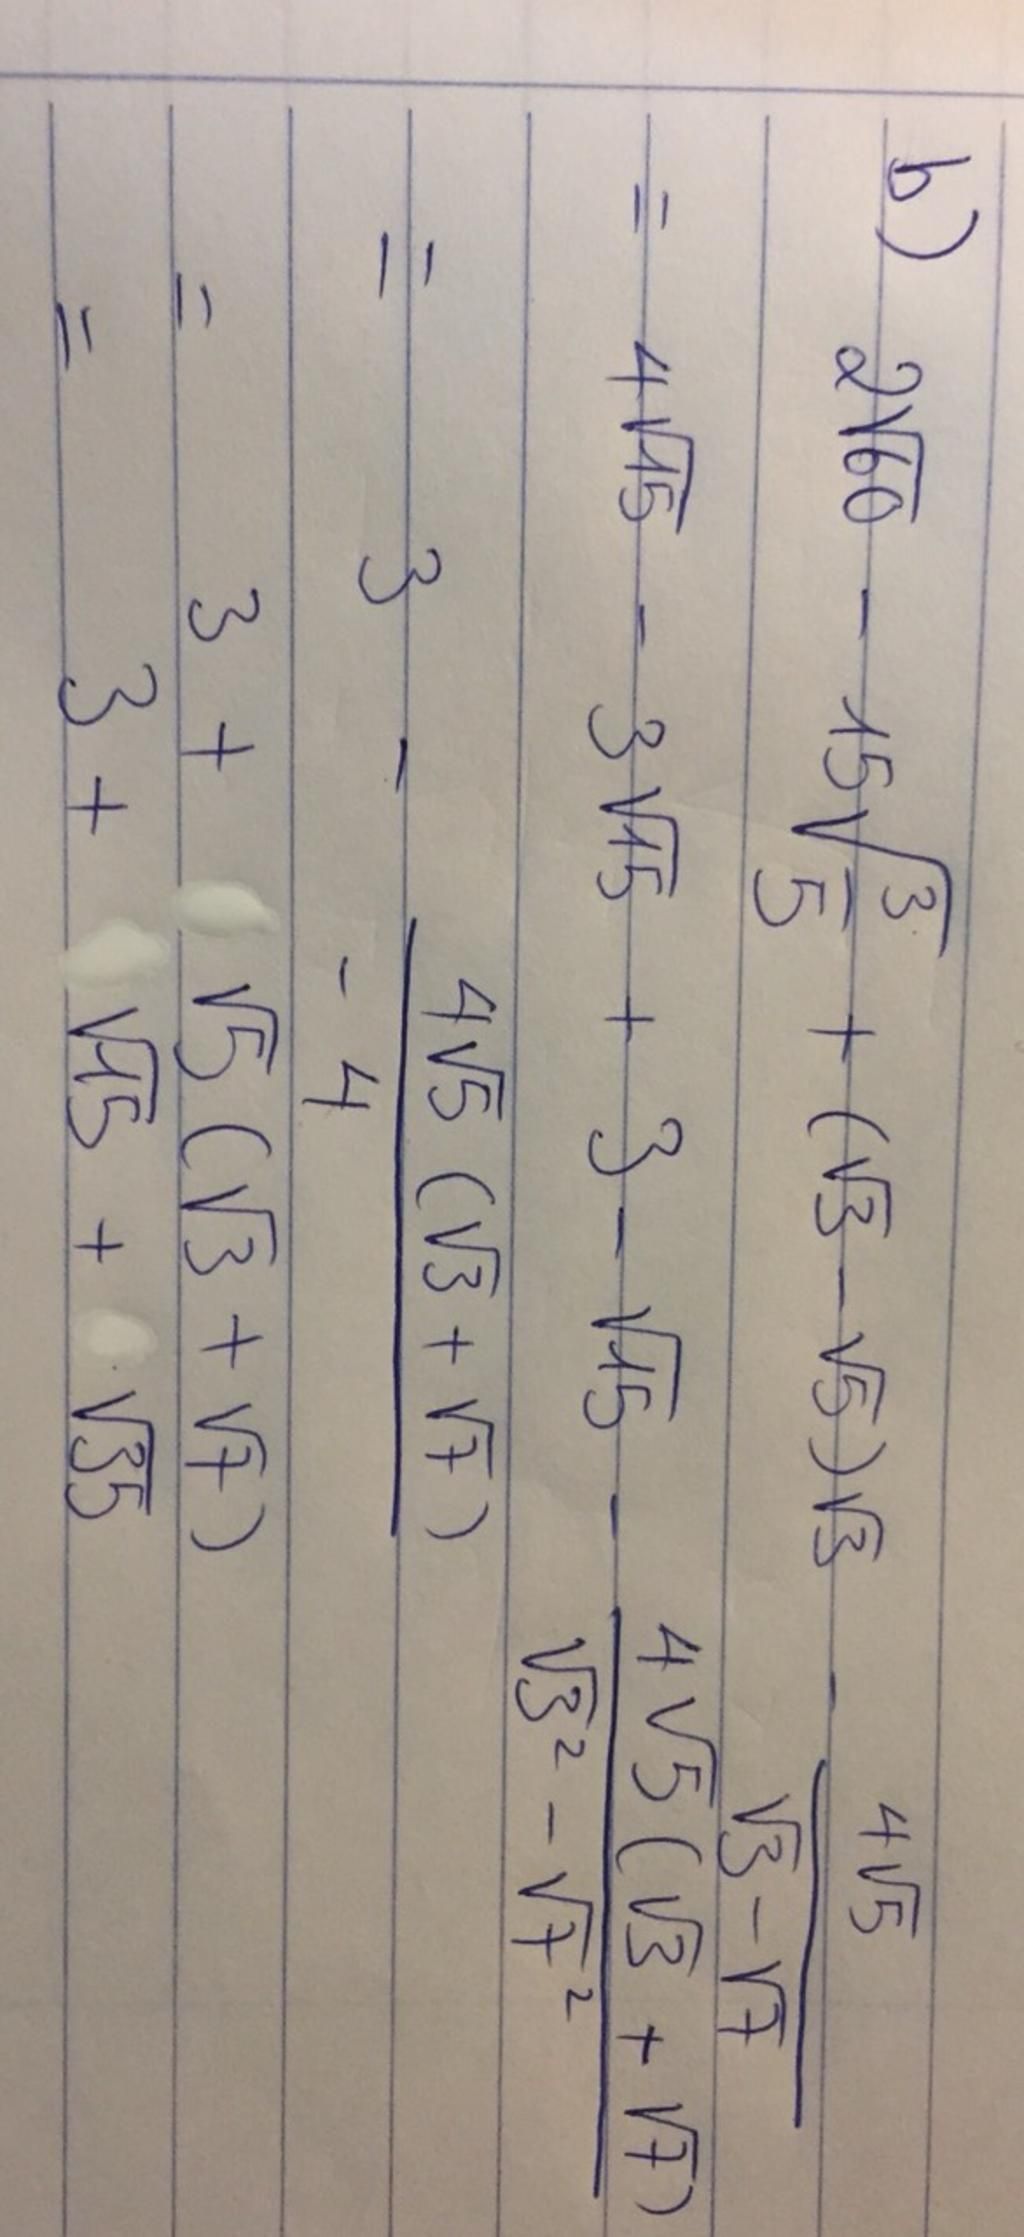 b) 2√60 - 15√(3/5) + (√3 - √5)√3 - 4√5/(√3 - √7)
= 4√15 - 3√15 + 3 - √15 - 4√5(√3 + √7)/(√3² - √7²)
= 3 - 4√5(√3 + √7)/(-4)
= 3 + √5(√3 + √7)
= 3 + √15 + √35